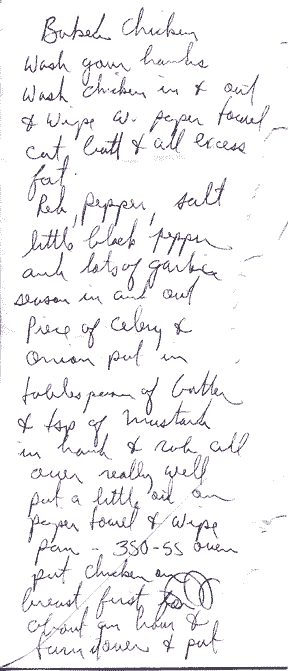 Baked Chicken
Wash your hands
Wash chicken in & out
& wipe w. paper towel
cut butt & all excess
fat.
Red, pepper, salt
little black pepper
and lots of garlic
season in and out
Piece of celery &
onion put in
tablespoon of butter
& tsp of mustard
in hand & rub all
over really well
put a little oil on
paper towel & wipe
pan - 350-55 oven
put chicken on
breast first for
about an hour &
turn over & put